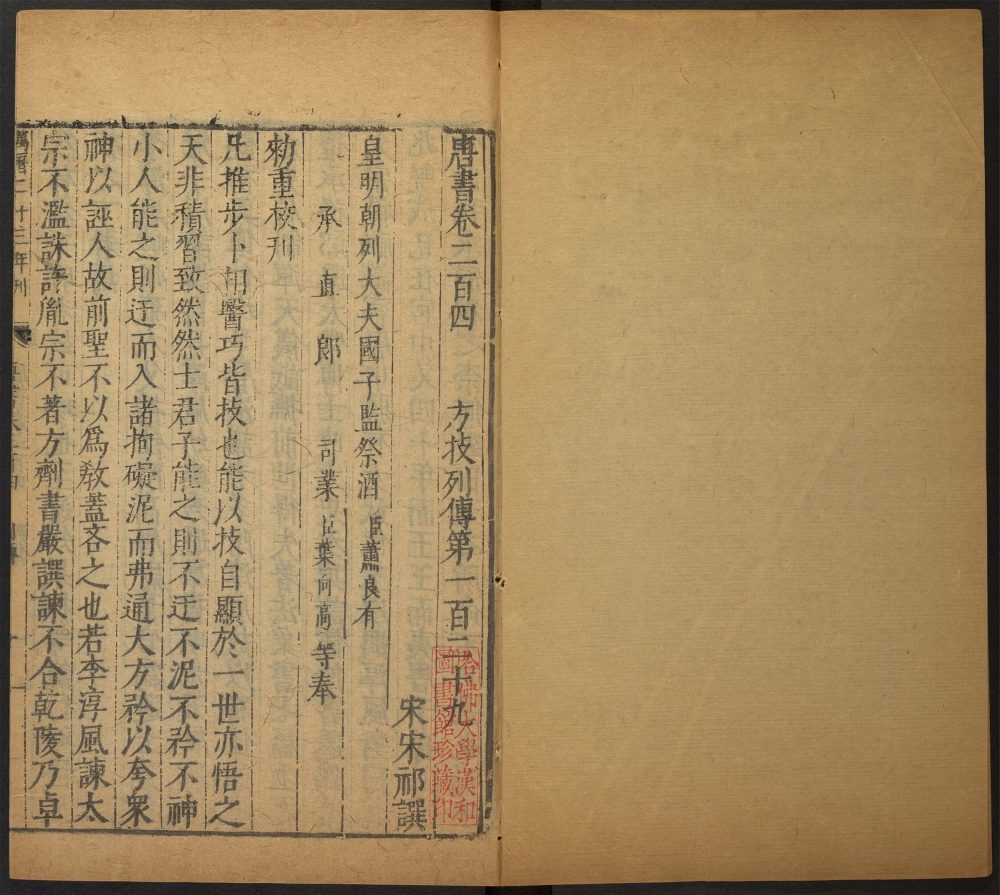 唐書卷二百四 方技列傳第一百二十九
宋宋祁譔
皇明朝列大夫國子監祭酒臣蕭良有
承直郎司業臣葉向高等奉
勑重校刊
凡推步卜相醫巧皆技也能以技自顯於一世亦悟之
天非積習致然然士君子能之則不迂不泥不矜不神
小人能之則迂而入諸拘礙泥而弗通大方矜以夸衆
神以誣人故前聖不以爲敎蓋吝之也若李淳風諫太
宗不濫誅許胤宗不著方劑書嚴譔諫不合乾陵乃卓
萬曆二十三年刊
哈佛大學漢和
圖書館珍藏印